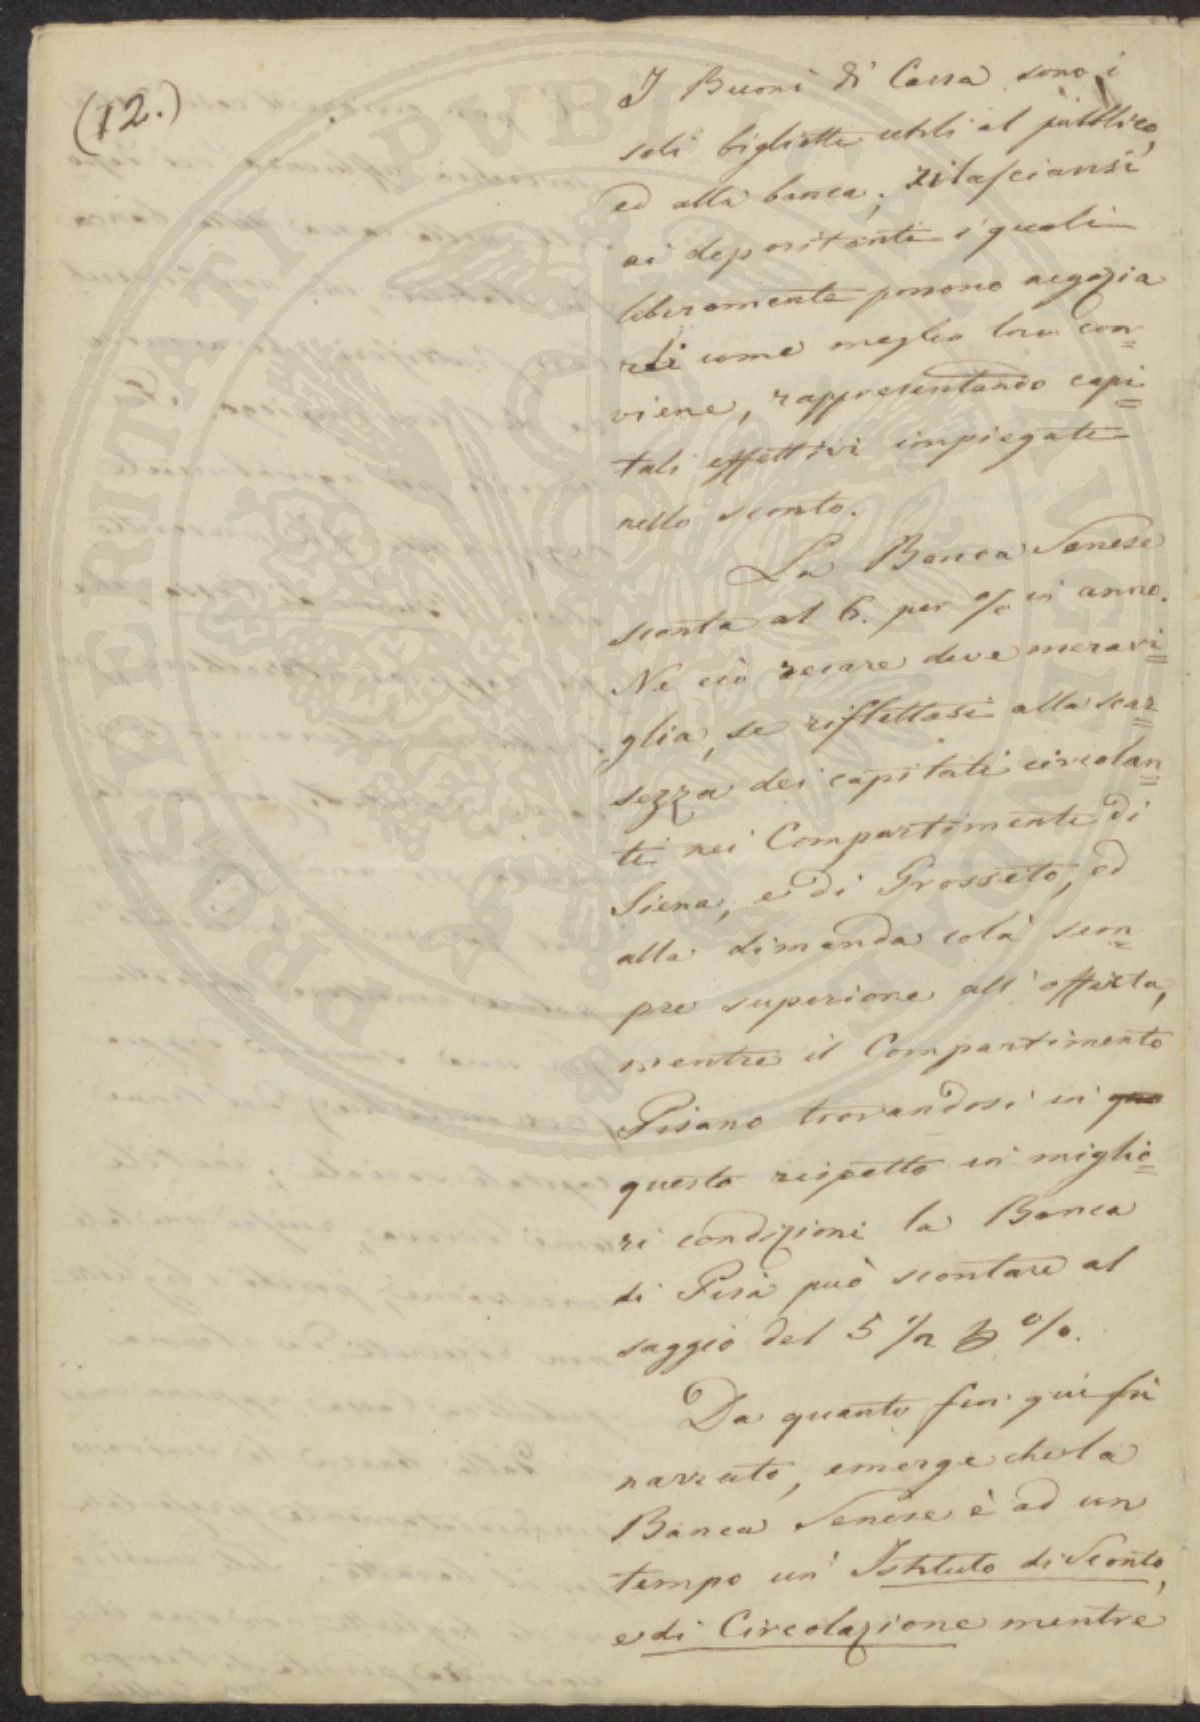 (12.)
I Buoni di Cassa sono i
soli biglietti utili al pubblico,
ed alla banca; rilasciansi
ai depositanti i quali
liberamente possono negozia
rli come meglio loro con=
viene, rappresentando capi=
tali effettivi impiegati
nello sconto.
La Banca Senese
sconta al 6. per % in anno.
Nè ciò recare deve meravi=
glia, se riflettasi alla scar=
sezza dei capitali circolan=
ti nei Compartimenti di
Siena, e di Grosseto, ed
alla dimanda colà sem=
pre superiore all'offerta,
mentre il Compartimento
Pisano trovandosi in
questo rispetto in miglio=
ri condizioni la Banca
di Pisa può scontare al
saggio del 5 1/2 p %.
Da quanto fin qui fù
narrato, emerge che la
Banca Senese è ad un
tempo un' Istituto di Sconto,
e di Circolazione mentre
PROSPERITATI PVBLICAE